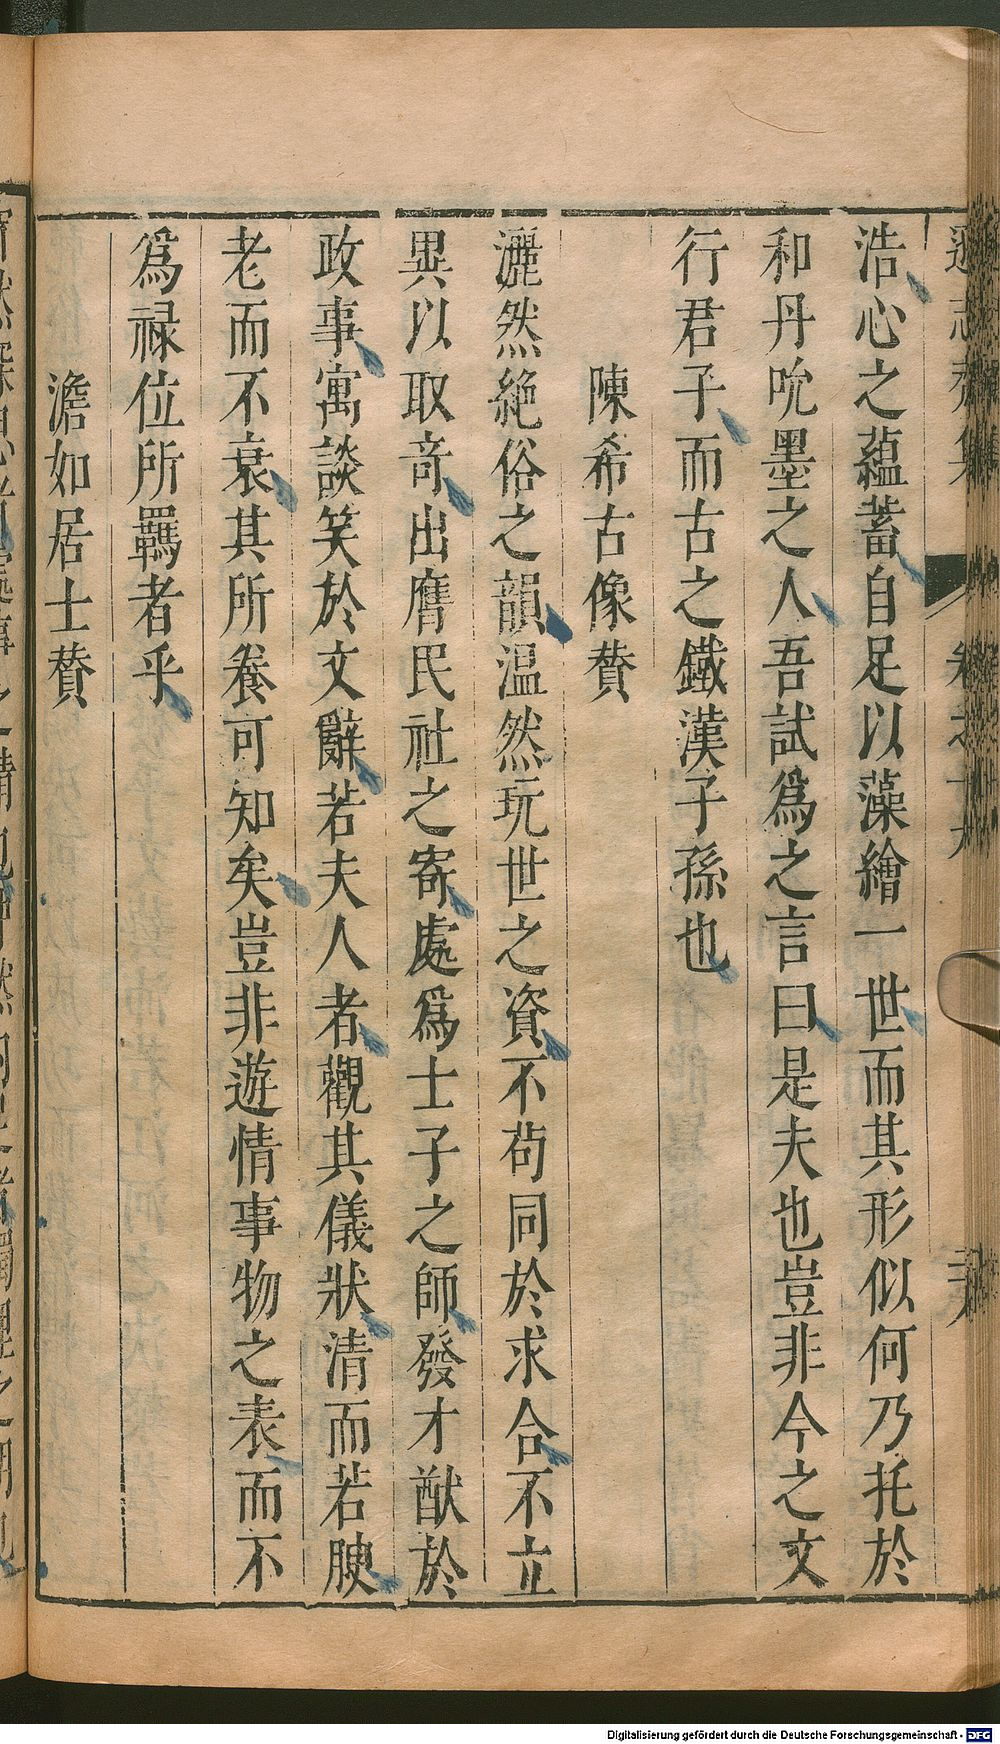 浩心之蘊蓄自足以藻繪一世而其形似何乃托於
和丹吮墨之人吾試爲之言曰是夫也豈非今之文
行君子而古之鐵漢子孫也
陳希古像賛
灑然絕俗之韻温然玩世之資不茍同於求合不立
異以取竒出膺民社之寄處爲士子之師發才猷於
政事寓談笑於文辭若夫人者觀其儀狀清而若腴
老而不衰其所養可知矣豈非遊情事物之表而不
爲禄位所羈者乎
澹如居士賛
Digitalisierung gefördert durch die Deutsche Forschungsgemeinschaft - DFG